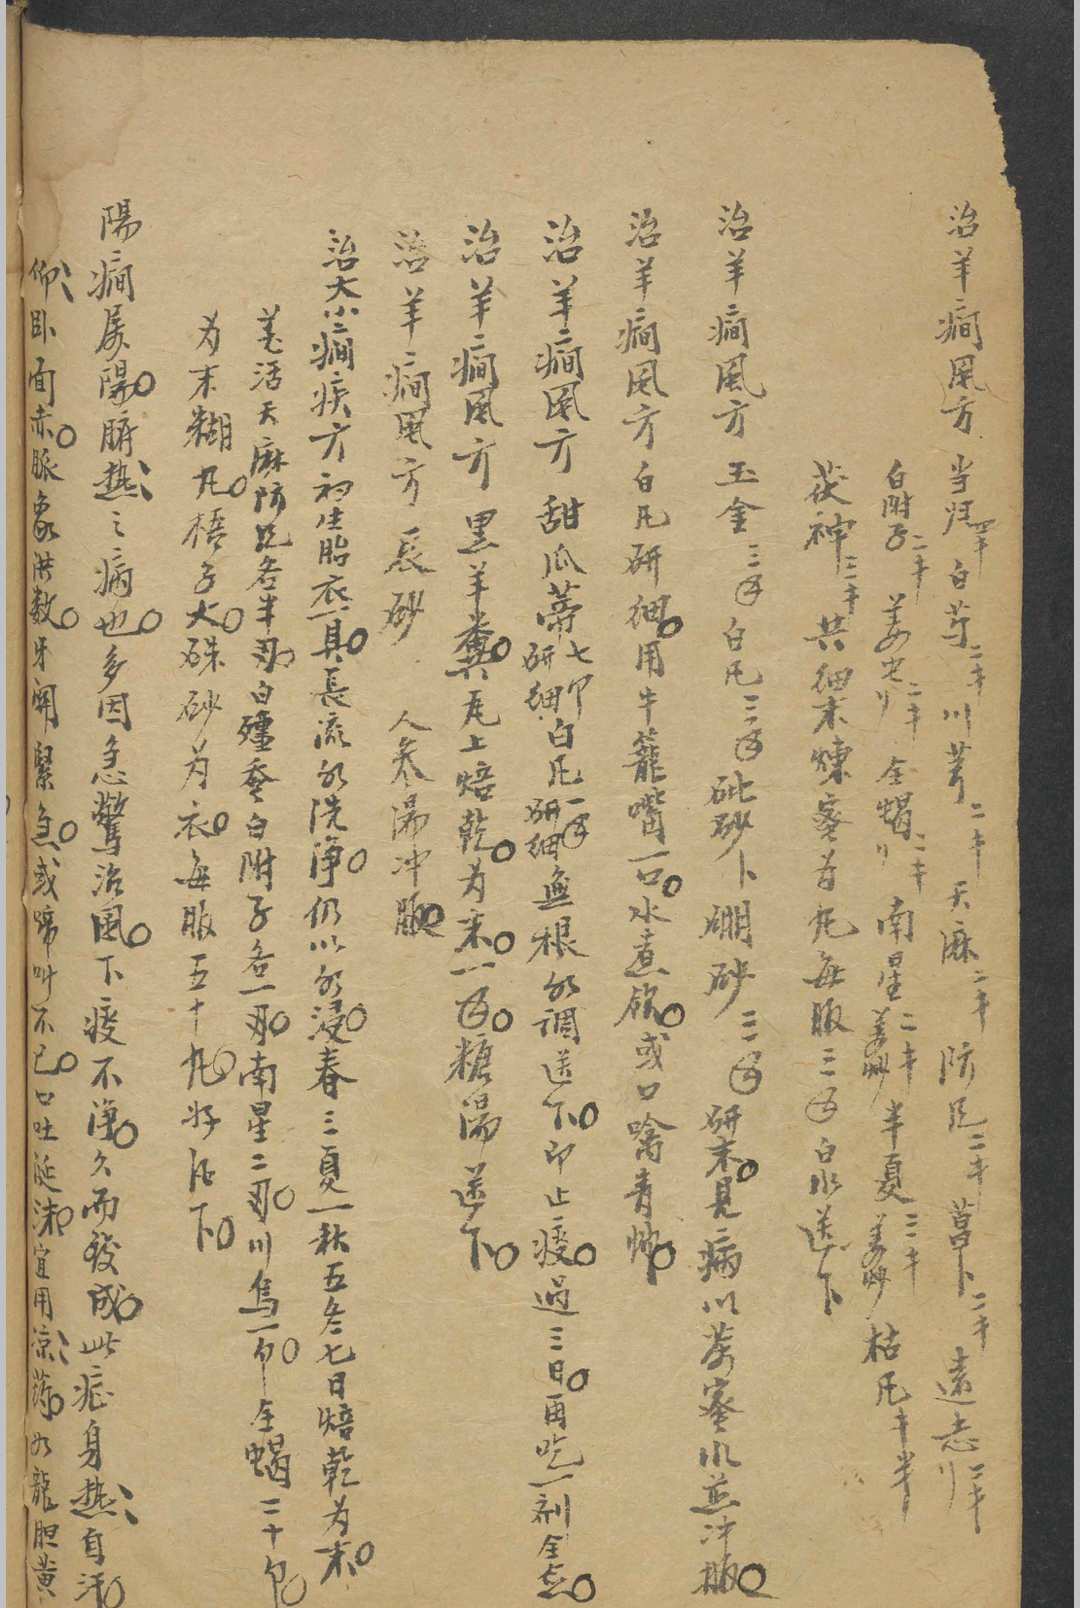 治羊癇風方 当归 白芍二キ川芎二キ天麻二キ防风二キ菖卜二キ遠志二キ
白附子二キ姜虫二キ全蝎二キ南星二キ姜炒半夏三キ姜炒枯凡キ半
茯神三キ共細末煉蜜为丸每服三白水送下
治羊癇風方 玉金三白凡三砂卜硼砂三研末見病以蜜水煎冲服
治羊癇風方 白凡研細用牛籠嘴一口水煮飲或口噙青
治羊癇風方 甜瓜蒂七个研細白凡一研細無根水調送下即止痰過三日再吃一剂全
治羊癇風方 黑羊糞瓦上焙乾为末一糖湯送下
治羊癇風方 辰砂 人参湯冲服
治大小癇疾方 初生胎衣一具長流水洗净仍以水浸春三夏一秋五冬七日焙乾为末
羌活天麻防风各半刄白殭蚕白附子各一刄南星二刄川烏一个全蝎二十个
为末糊丸梧子大硃砂为衣每服五十丸好酒下
陽癇属陽腑热之病也多因急驚治風下痰不净久而發成此症身热自汗
仰卧面赤脈象洪数牙関緊急或啼叫不已口吐涎沫宜用凉药如龍胆黄